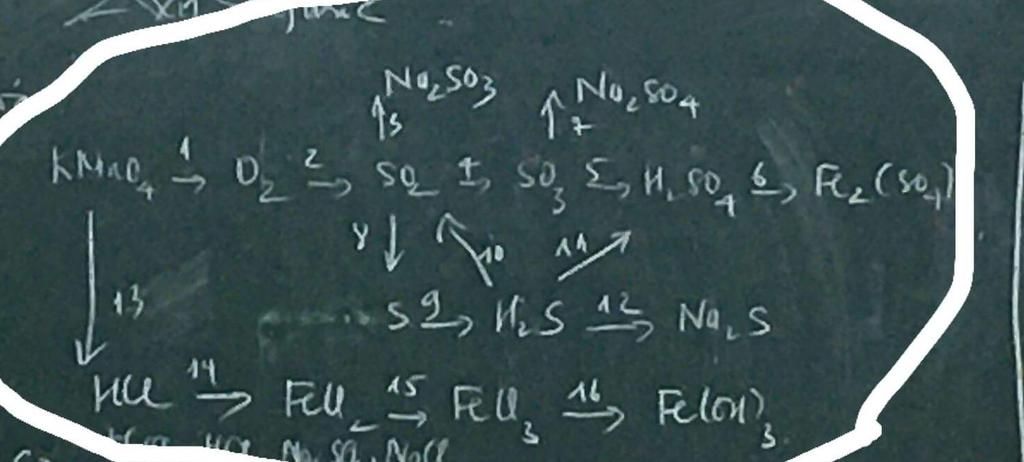 Na2SO3 Na2SO4
↑3 ↑7
KMnO4 1→ O2 2→ SO2 4→ SO3 5→ H2SO4 6→ Fe2(SO4)
8↓ 10 11
S 9→ H2S 12→ Na2S
13
HCl 14→ FeCl2 15→ FeCl3 16→ Fe(OH)3